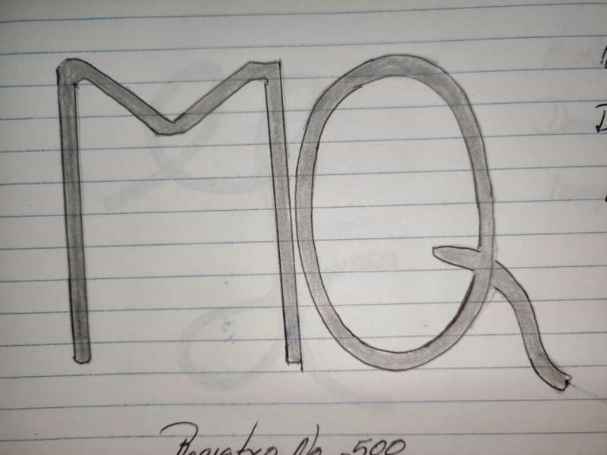 MQ
Registro No -500